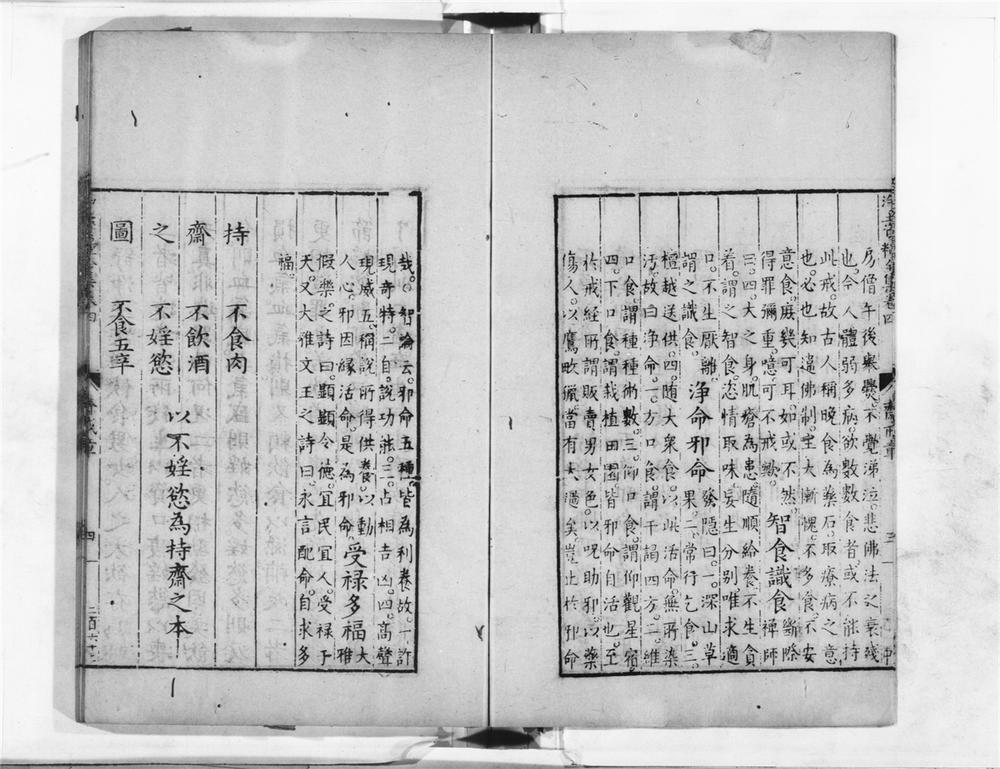 房僧午後舉爨。不覺涕泣。悲佛法之衰殘
也。今人體弱多病。欲數數食者。或不能持
此戒。故古人稱晚食為藥石。取療病之意
也。必也知違佛制。生大慚愧。不多食。不安
意食。庶幾可耳。如或不然。
得罪彌重。噫。可不戒歟。
智食識食
斷際
禪師
曰。四大之身。肌瘡為患。隨順給養。不生貪
着。謂之智食。恣情取味。妄生分別。唯求適
口。不生厭離。
謂之識食。
淨命邪命
發隱曰。一。深山草
果。二。常行乞食。三。
檀越送供。四。隨大衆食。以此活命。無所染
汚。故曰淨命。一。方口食。謂干謁四方。二。維
口食。謂種種術數。三。仰口食。謂仰觀星宿。
四。下口食。謂栽植田園。皆邪命自活也。至
於戒經所謂販賣男女色。以呪助邪。以藥
傷人。以鷹畋獵。當有大過矣。豈止於邪命
哉。智論云。邪命五種。皆為利養故。一。詐
現奇特。二。自說功能。三。占相吉凶。四。高聲
現威。五。稱說所得供養。以動
人心。邪因緣活命。是為邪命。
受祿多福
大
雅
假樂之詩曰。顯顯令德。宜民宜人。受祿于
天。又大雅文王之詩曰。永言配命。自求多
福。
持齋之圖
不食肉
不飲酒
不婬慾
不食五辛
以不婬慾為持齋之本